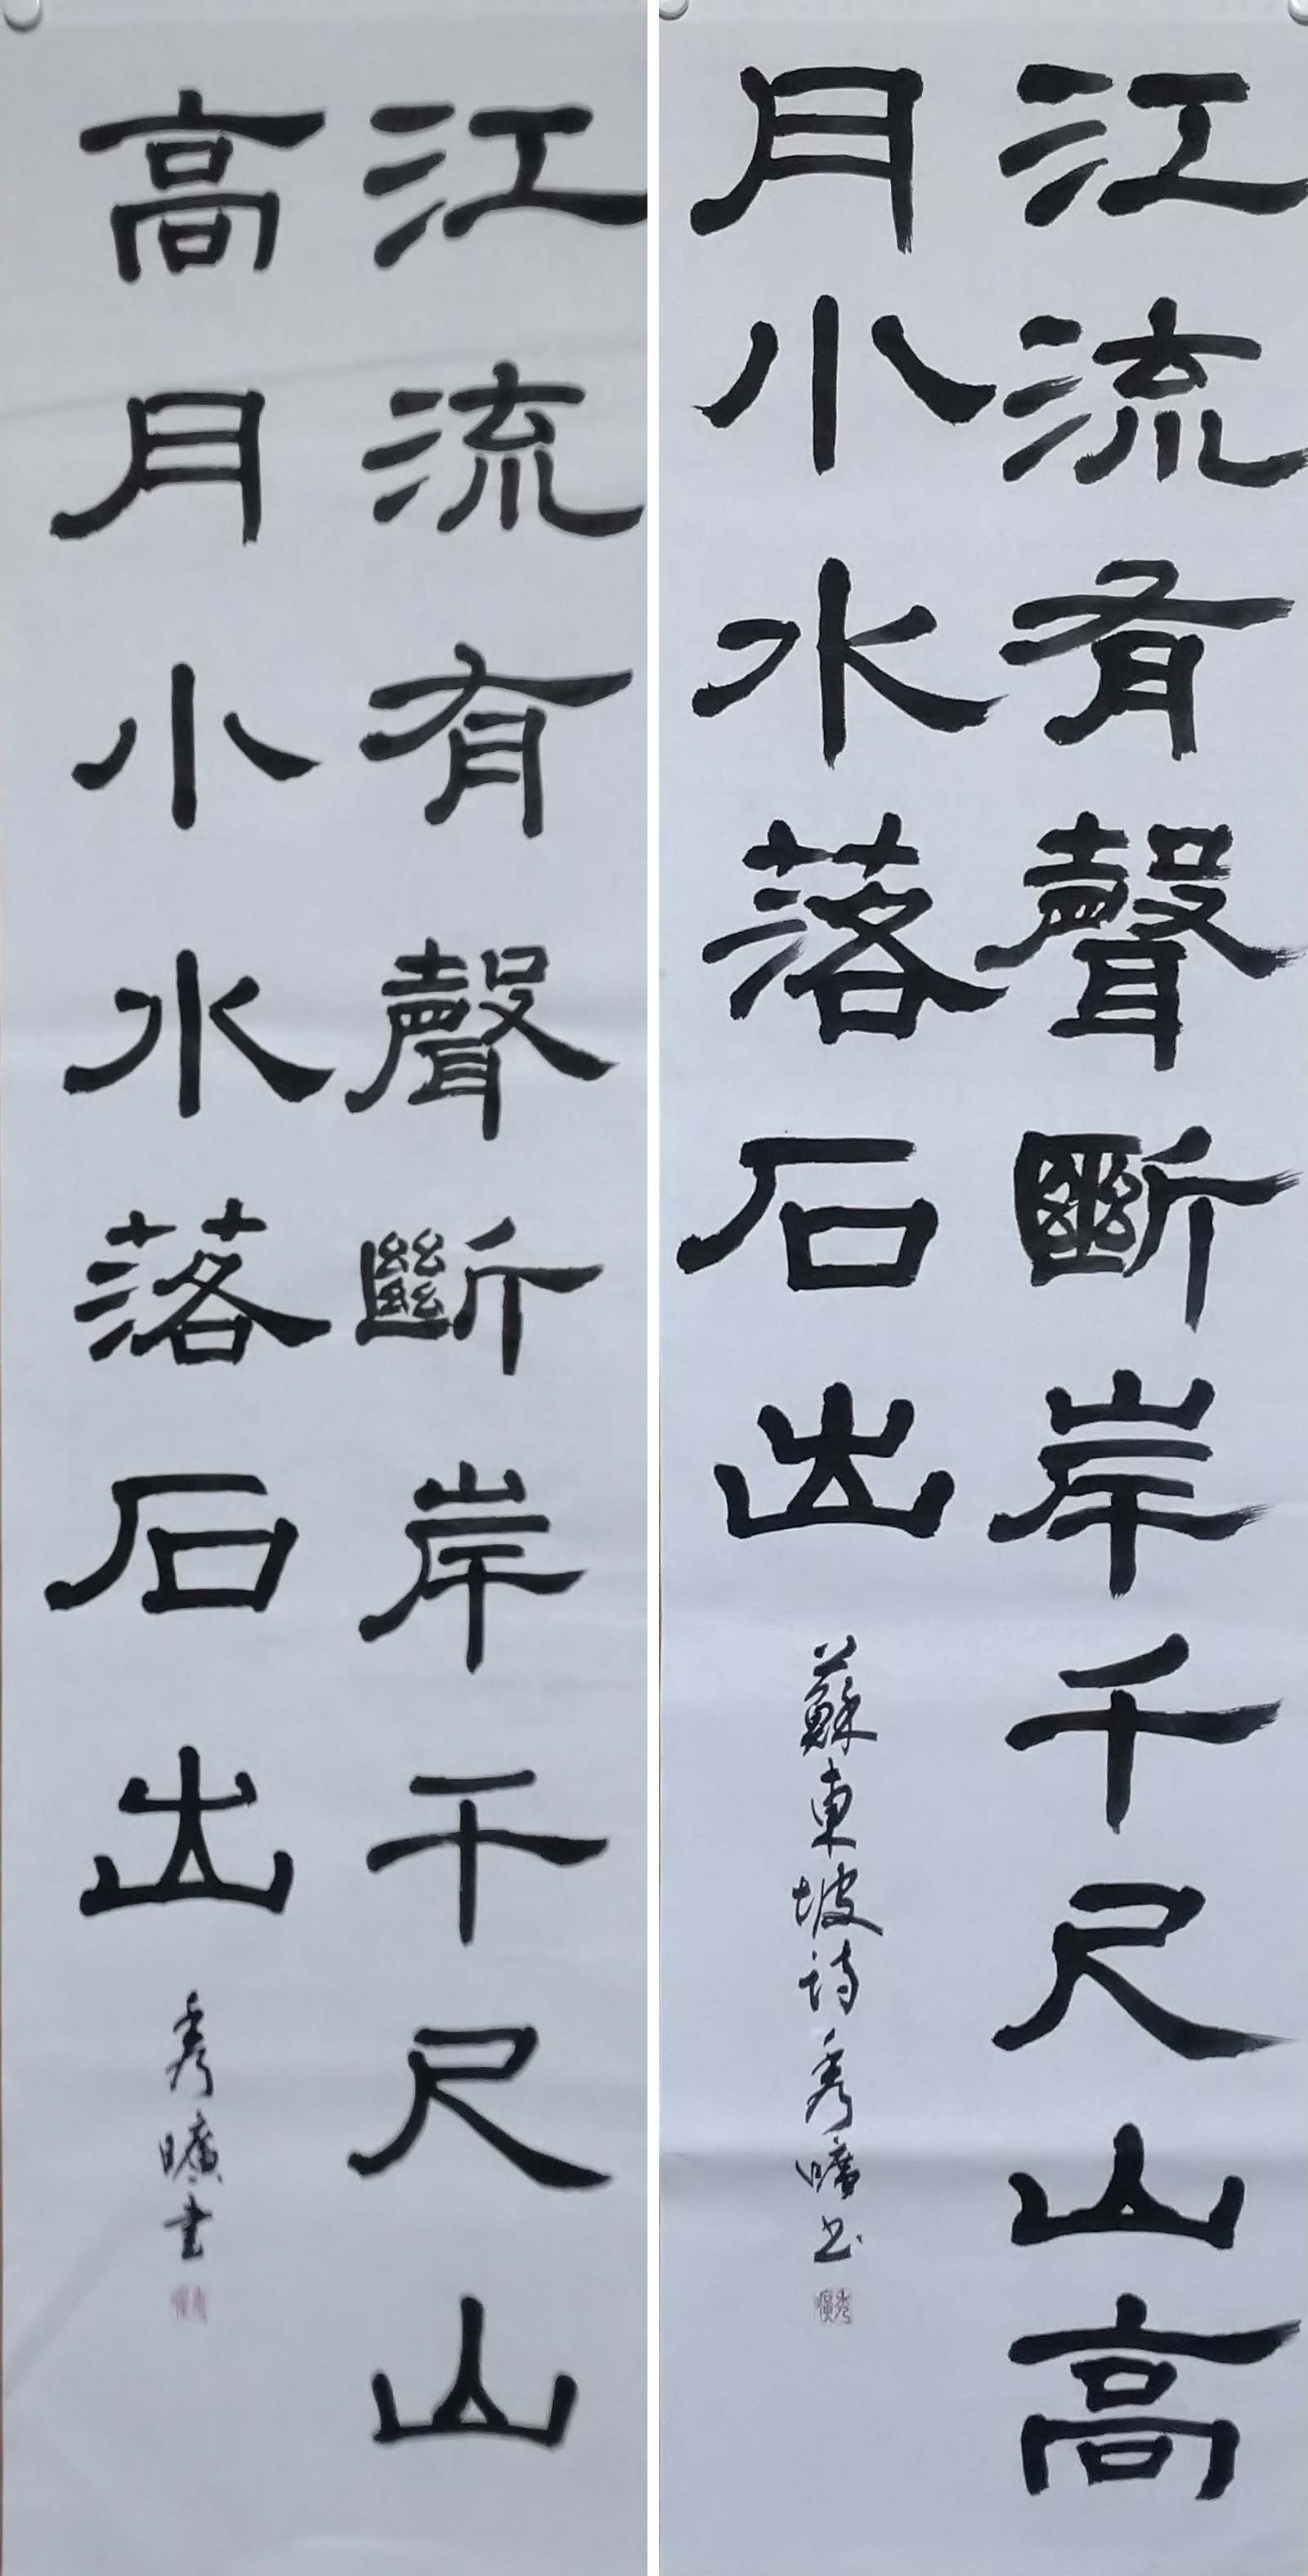 江流有聲斷岸千尺山高
月小水落石出
蘇東坡詩秀曠书
秀曠
江流有聲斷岸干尺山
高月小水落石出
秀曠書
秀曠